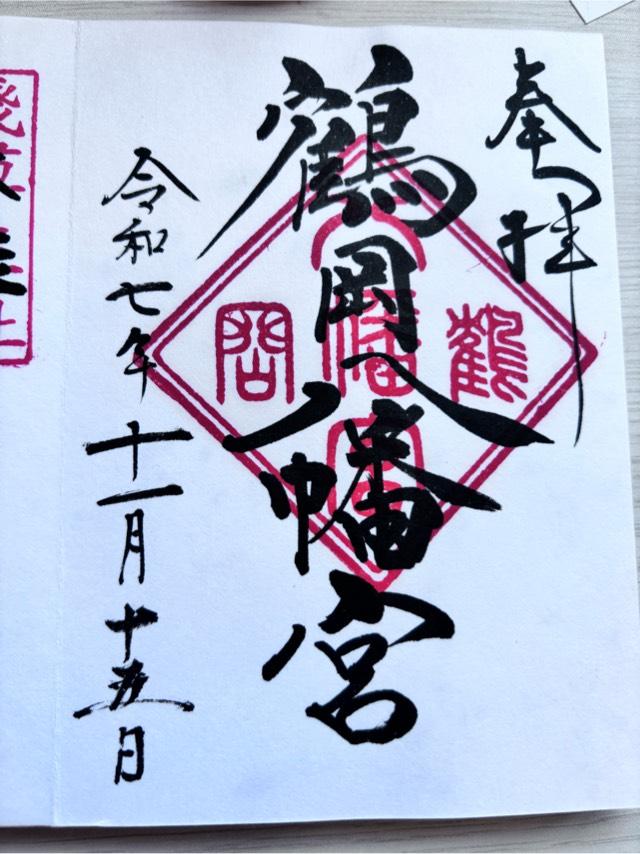 奉拝
鶴岡八幡宮
鶴
岡
令和七年十一月十五日